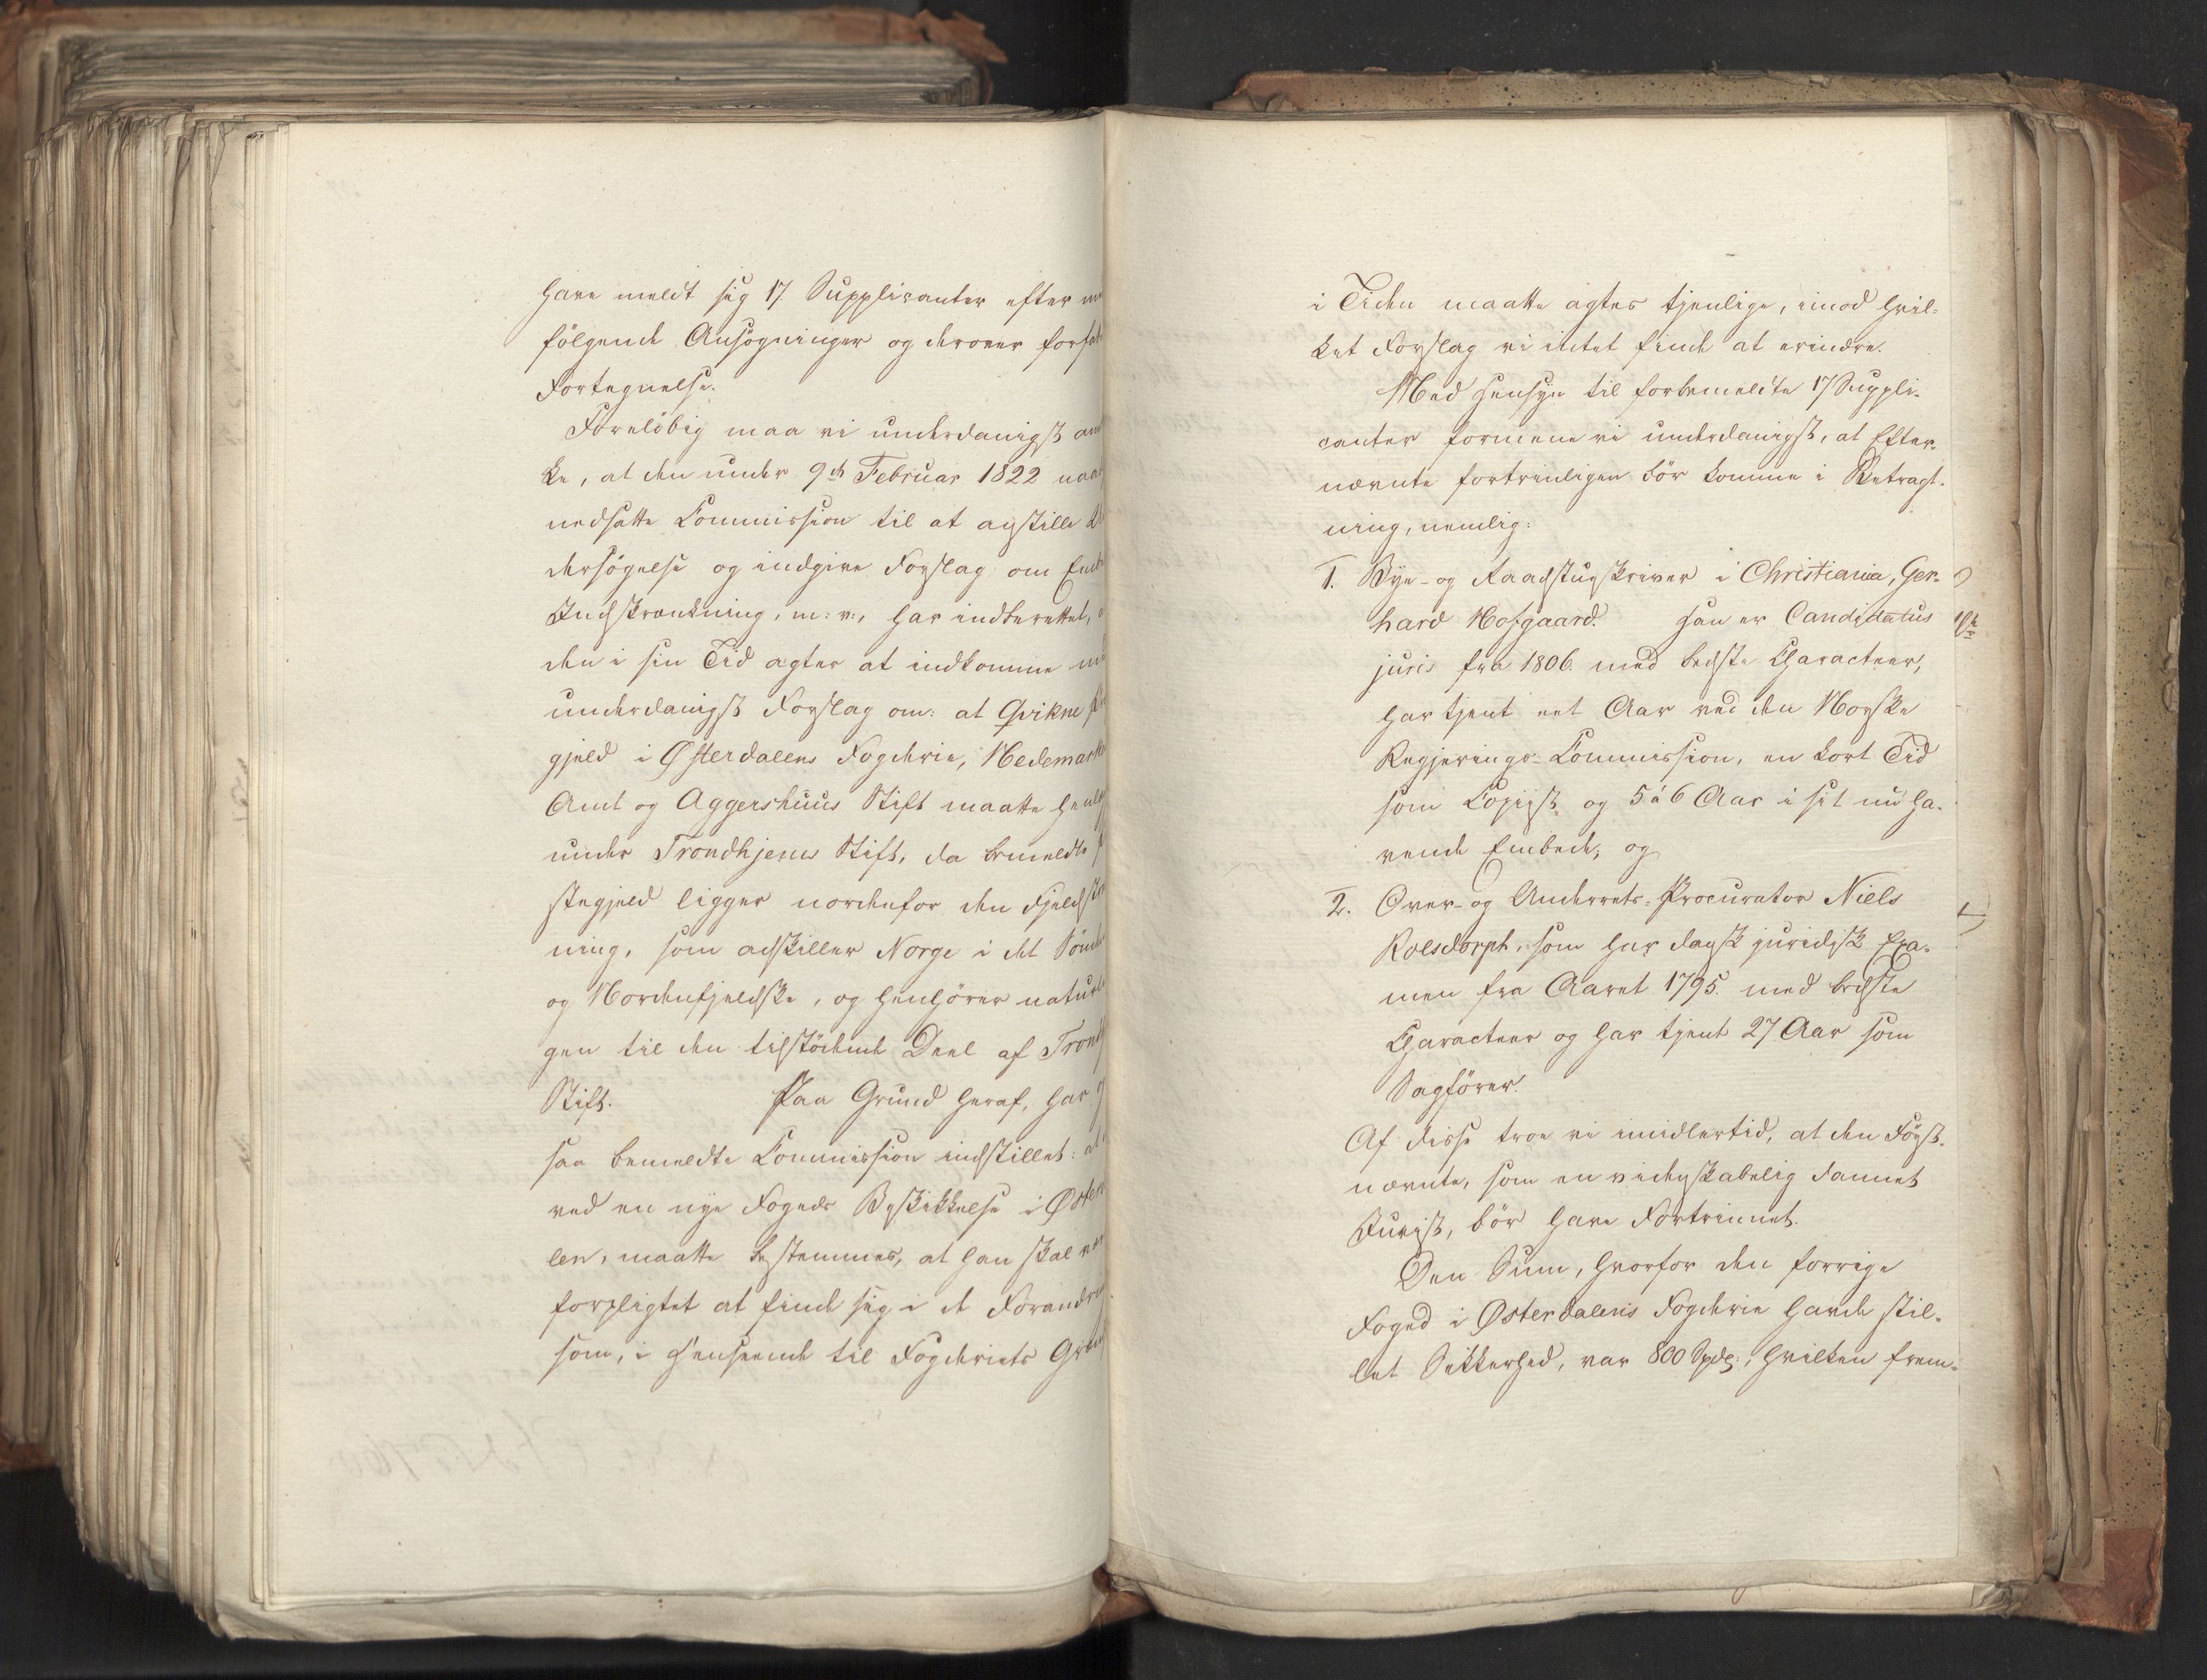 have meldt sig 17 Supplicanter efter
følgende Ansøgninger og derover forfat
Fortegnelse.
Foreløbig maa vi underdanigst an
ke, at den under 9de Februar 1822 naad
nedsatte Commission til at anstille Un
dersøgelse og indgive Forslag om Emb
Indskrænkning, m: v:, har indberettet, a
den i sin Tid agter at indkomme m
underdanigst Forslag om: at Qvikne Præ
gjeld i Østerdalens Fogderie, Hedemark
Amt og Aggershuus Stift maatte henlæg
under Trondhjems Stift, da bemeldte P
stegjeld ligger nordenfor den Fjeldstræ
ning, som adskiller Norge i det Sønden
og Nordenfjeldske, og henhører naturli
gen til den tilstødende Deel af Trondh
Stift. Paa Grund heraf, har og
saa bemeldte Commission indstillet: at
ved en nye Fogeds Beskikkelse i Øster
len, maatte bestemmes, at han skal vær
forpligtet at finde sig i de Forandrin
som, i Henseende til Fogderiets Græn
i Tiden maatte agtes tjenlige, imod hvil-
ket Forslag vi intet finde at erindre.
Med Hensyn til forbemeldte 17 Suppli-
canter formene vi underdanigst, at Efter-
nævnte fortrinligen bør komme i Betragt-
ning, nemlig:
1. Bye- og Raadstugskriver i Christiania, Ger-
hard Hofgaard. Han er Candidatus
juris fra 1806. med bedste Characteer,
har tjent eet Aar ved den Norske
Regjerings-Commission, en kort Tid
som Copiist og 5 à 6 Aar i sit nu ha-
vende Embede, og
2. Over- og Underrets-Procurator Niels
Roelsdorph, som har dansk juridisk Exa-
men fra Aaret 1795. med bedste
Characteer og har tjent 27 Aar som
Sagfører.
Af disse troe vi imidlertid, at den Først-
nævnte, som en videnskabelig dannet
Jurist, bør have Fortrinnet.
Den Sum, hvorfor den forrige
Foged i Østerdalens Fogderie havde stil-
let Sikkerhed, var 800 Spdlr:, hvilken frem-